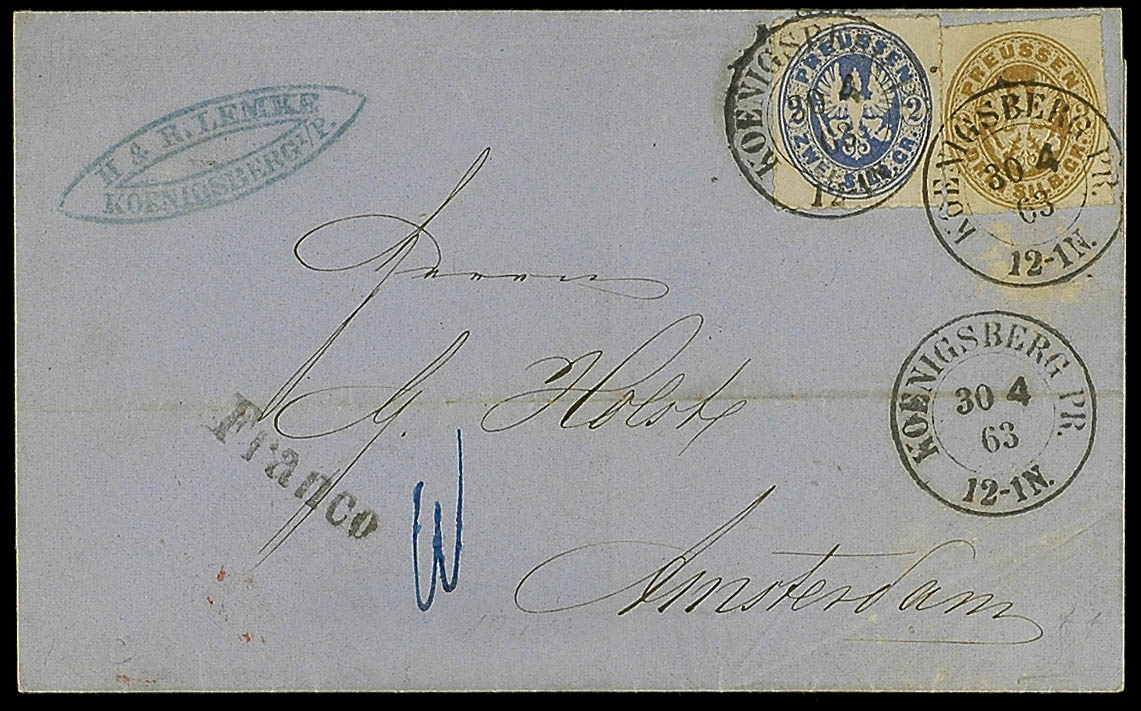 H & R. LEMKE
KOENIGSBERG I/P.
PREUSSEN
2
ZWEI SILB. GR.
PREUSSEN
SILB. GR.
KOENIGSBERG
30 4
63
12
KOENIGSBERG PR.
30 4
63
12-1N.
Herrn
G. Holst
Franco
KOENIGSBERG PR.
30 4
63
12-1N.
Amsterdam